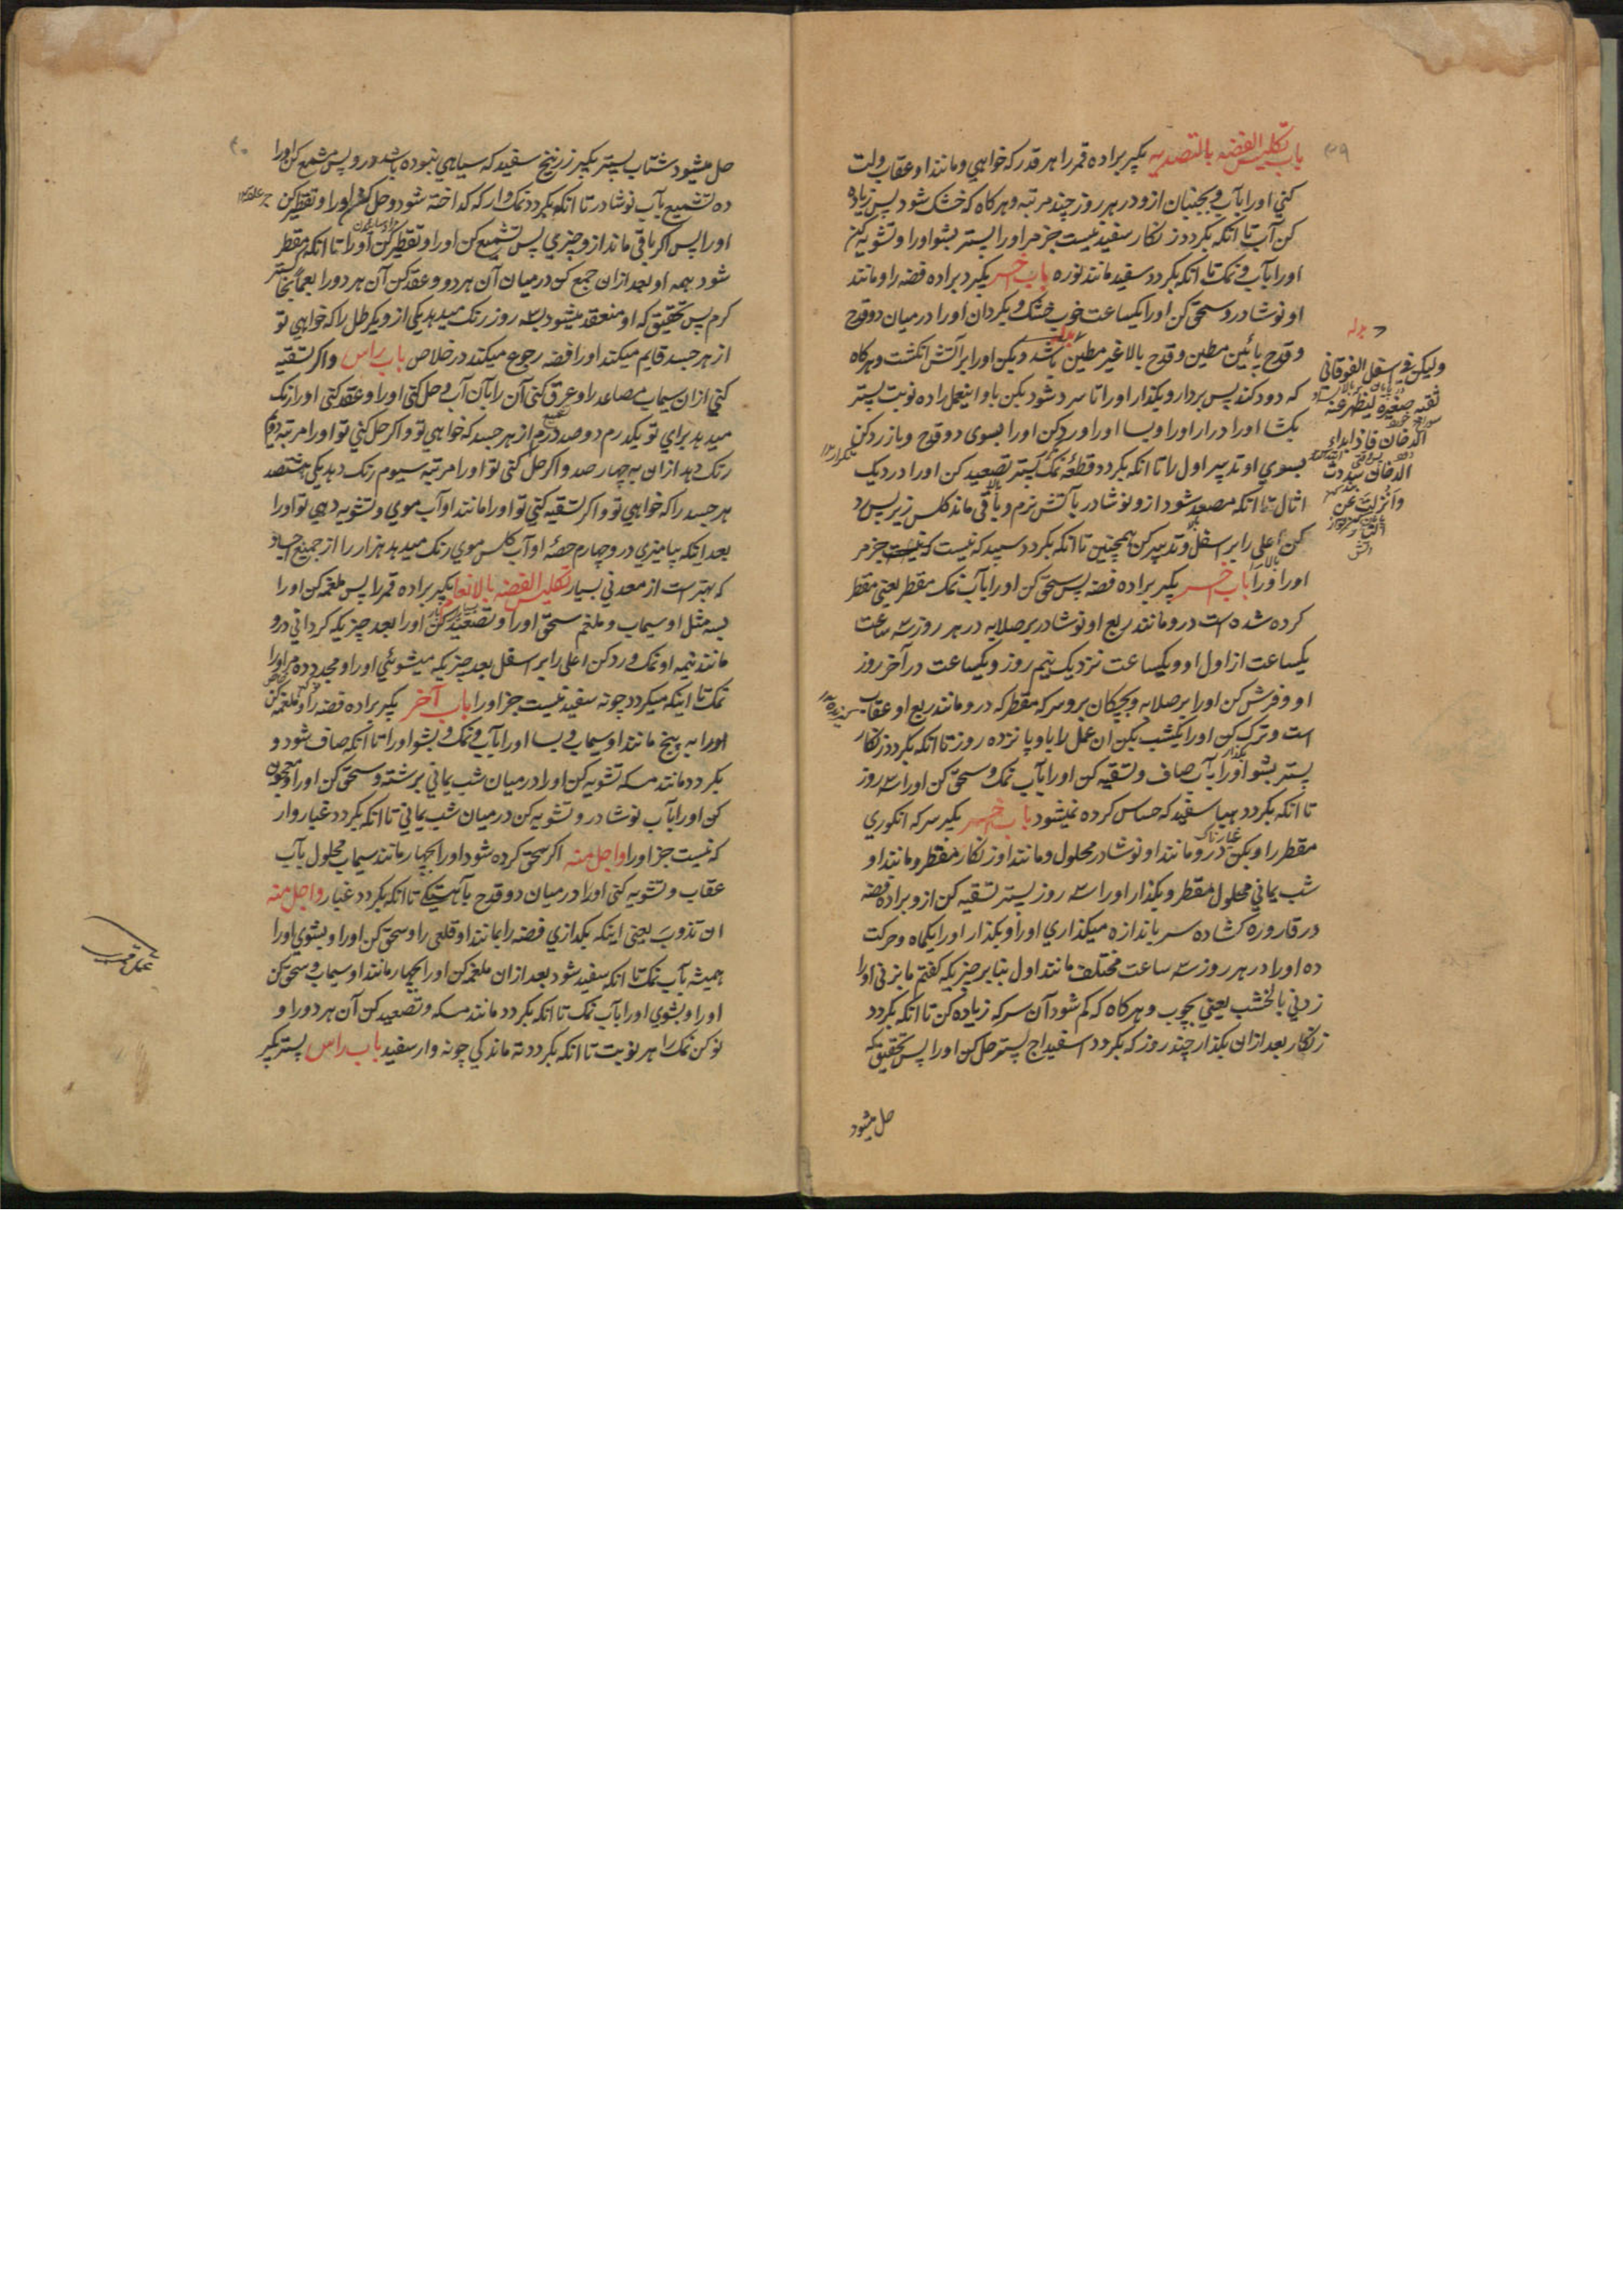 باب تکلیس الفضه بالتصدیه بکیر براده قمر را هر قدر که خواهی و مانند او عقاب ولت
کنی اورا بآب و بجنبان ازو در هر روز چند مرتبه و هر کاه که خشک شود پس زیاده
کن آب تا انکه بکردد زنکار سفید نیست جز مر اورا بستر بشو اورا و تشویه کن
اورا بآب و نمک تا انکه بکردد سفید مانند نوره باب اخر بکیر د براده فضه را و مانند
او نوشادر و سحق کن اورا یکساعت خوب خشک و بکردان اورا درمیان دو قدح
و قدح پائین مطین و قدح بالا غیر مطین باشد و بکن اورا بر آتش انکشت و هر کاه
که دود کند پس بردار و بکذار اورا تا سرد شود بکن باو اینعمل را ده نوبت بستر
بکشا اورا در ار اورا وبسا اورا و رد کن اورا بسوی دو قدح و باز رد کن
بسوی او تدبیر اول را تا انکه بکردد قطعه نمک بستر تصعید کن اورا در دیک
اثال تا انکه مصعد شود ازو نوشادر بآتش نرم و باقی ماند کلس زیر پس رد
کن اعلی را بر اسفل و تدبیر کن همچنین تا انکه بکردد سپید که نیست جز مر
اورا باب اخر بکیر براده فضه پس سحق کن اورا بآب نمک مقطر یعنی مقطر
کرده شده است درو مانند ربع او نوشادر بر صلایه در هر روز سه ساعت
یکساعت از اول او و یکساعت نزدیک نیم روز و یکساعت در آخر روز
او و فرش کن اورا بر صلایه و بچکان برو سرکه مقطر که درو مانند ربع او عقاب
است و ترک کن اورا یکشب بکن ان عمل را باو پانزده روز تا انکه بکردد زنکار
بستر بشو اورا بآب صاف و تسقیه کن اورا بآب نمک و سحق کن اورا سه روز
تا انکه بکردد هبا سفید که حساس کرده نمیشود باب اخر بکیر سرکه انکوری
مقطر را و بکن درو مانند او نوشادر محلول و مانند او زنکار مقطر و مانند او
شب یمانی محلول مقطر و بکذار اورا سه روز بستر تسقیه کن ازو براده فضه
در قاروره کشاده سر باندازه میکذاری اورا و بکذار اورا یکماه و حرکت
ده اورا در هر روز سه ساعت مختلف مانند اول بنا بر چیزیکه کفتم ما بزنی اورا
زدنی بالخشب یعنی بچوب و هر کاه که کم شود آن سرکه زیاده کن تا انکه بکردد
زنکار بعد ازان بکذار چند روز که بکردد اسفیداج بستر حل کن اورا پس تحقیق که
حل میشود
ولیکن فی اسفل الفوقانی
ثقبه صغیره لینظر منه
الدخان فاذا بداء
الدخان سددت
وانزلت عن
النار
حل میشود شتاب بستر بکیر زرنیخ سفید که سیاهی نبوده باشد درو پس مشمع کن اورا
ده تشمیع بآب نوشادر تا انکه بکردد نمک وار که کداخته شود و حل کن اورا و تقطیر کن
اورا پس اکر باقی ماند ازو چیزی پس تشمیع کن اورا و تقطیر کن اورا تا انکه مقطر
شود همه او بعد ازان جمع کن درمیان آن هر دو و عقد کن آن هر دو را بعمیا بخاکستر
کرم پس تحقیق که او منعقد میشود بسه روز رنک میدهد یکی ازو یکرطل را که خواهی تو
از هر جسد قایم میکند اورا فضه رجوع میکند در خلاص باب راس و اکر تسقیه
کنی ازان سیماب مصاعد را و غرق کنی آن را بآن آب و حل کنی اورا و عقد کنی اورا رنک
میدهد برای تو یکدرم دو صد درم از هر جسد که خواهی تو و اکر حل کنی تو اورا مرتبه دوم
رنک دهد ازان به چهار صد و اکر حل کنی تو اورا مرتبه سیوم رنک دهد یکی هشتصد
هر جسد را که خواهی تو و اکر تسقیه کنی تو اورا مانند او آب موی و تشویه دهی تو اورا
بعد اینکه بیامیزی درو چهارم حصه او آب کلس موی رنک میدهد هزار را از جمیع اجساد
که بهتر است از معدنی بسیار تکلیس الفضه بالالغام بکیر براده قمر را پس ملغمه کن اورا
بسه مثل او سیماب و ملغم سحق اورا و تصعید کن اورا بعد چیزیکه کردانی درو
مانند نیمه او نمک و رد کن اعلی را بر اسفل بعد چیزیکه میشوئی اورا و مجدد ده مر اورا
نمک تا اینکه میکردد چونه سفید نیست جز اورا باب آخر بکیر براده فضه را و ملغمه کن
اورا به پنج مانند او سیماب و بسا اورا بآب و نمک و بشو اورا تا انکه صاف شود و
بکردد مانند مسکه تشویه کن اورا درمیان شب یمانی برشته و سحق کن اورا و معجون
کن اورا بآب نوشادر و تشویه کن درمیان شب یمانی تا انکه بکردد غبار وار
که نیست جز اورا واجل منه اکر سحق کرده شود اورا بچهار مانند سیماب محلول بآب
عقاب و تشویه کنی اورا درمیان دو قدح بآهستیکی تا انکه بکردد غبار واجل منه
ان تذوب یعنی اینکه بکدازی فضه را بمانند او قلعی را و سحق کن اورا و بشوی اورا
همیشه بآب نمک تا انکه سفید شود بعد ازان ملغمه کن اورا بچهار مانند او سیماب و سحق کن
اورا و بشوی اورا بآب نمک تا انکه بکردد مانند مسکه و تصعید کن آن هر دو را و
نو کن نمک را هر نوبت تا انکه بکردد ته ماندکی چونه وار سفید باب راس بستر بکیر
عمل قمری